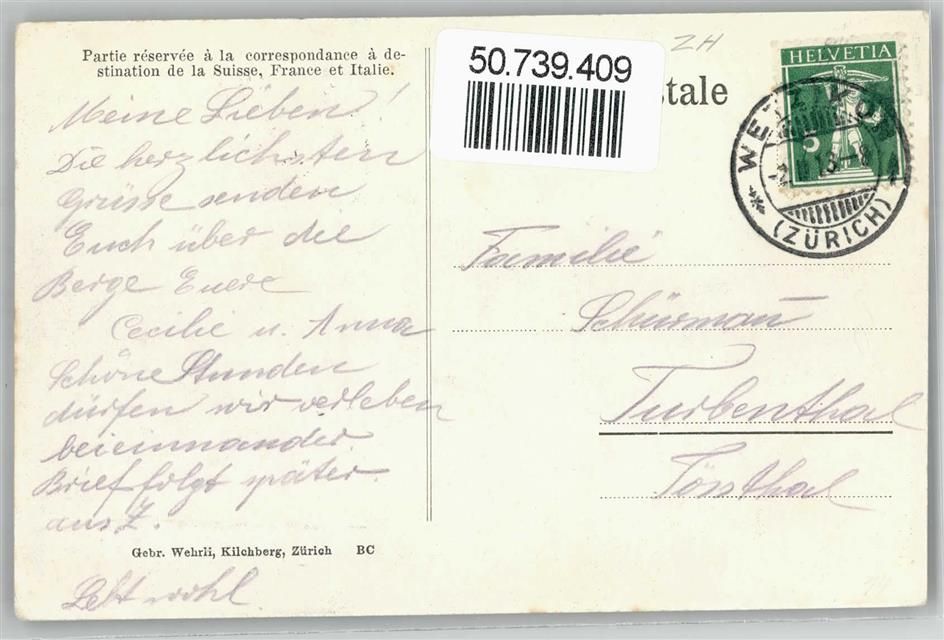 Partie réservée à la correspondance à de-
stination de la Suisse, France et Italie.
50.739.409
stale
ZH
HELVETIA
5
(ZÜRICH)
Meine Lieben!
Die herzlichsten
Grüsse senden
Euch über die
Berge Euere
Cecilie u. Anna
Schöne Stunden
dürfen wir verleben
beieinnander
Brief folgt später
aus Z.
Gebr. Wehrli, Kilchberg, Zürich BC
Lebt wohl
Familie
Schürmañ
Turbenthal
Tössthal